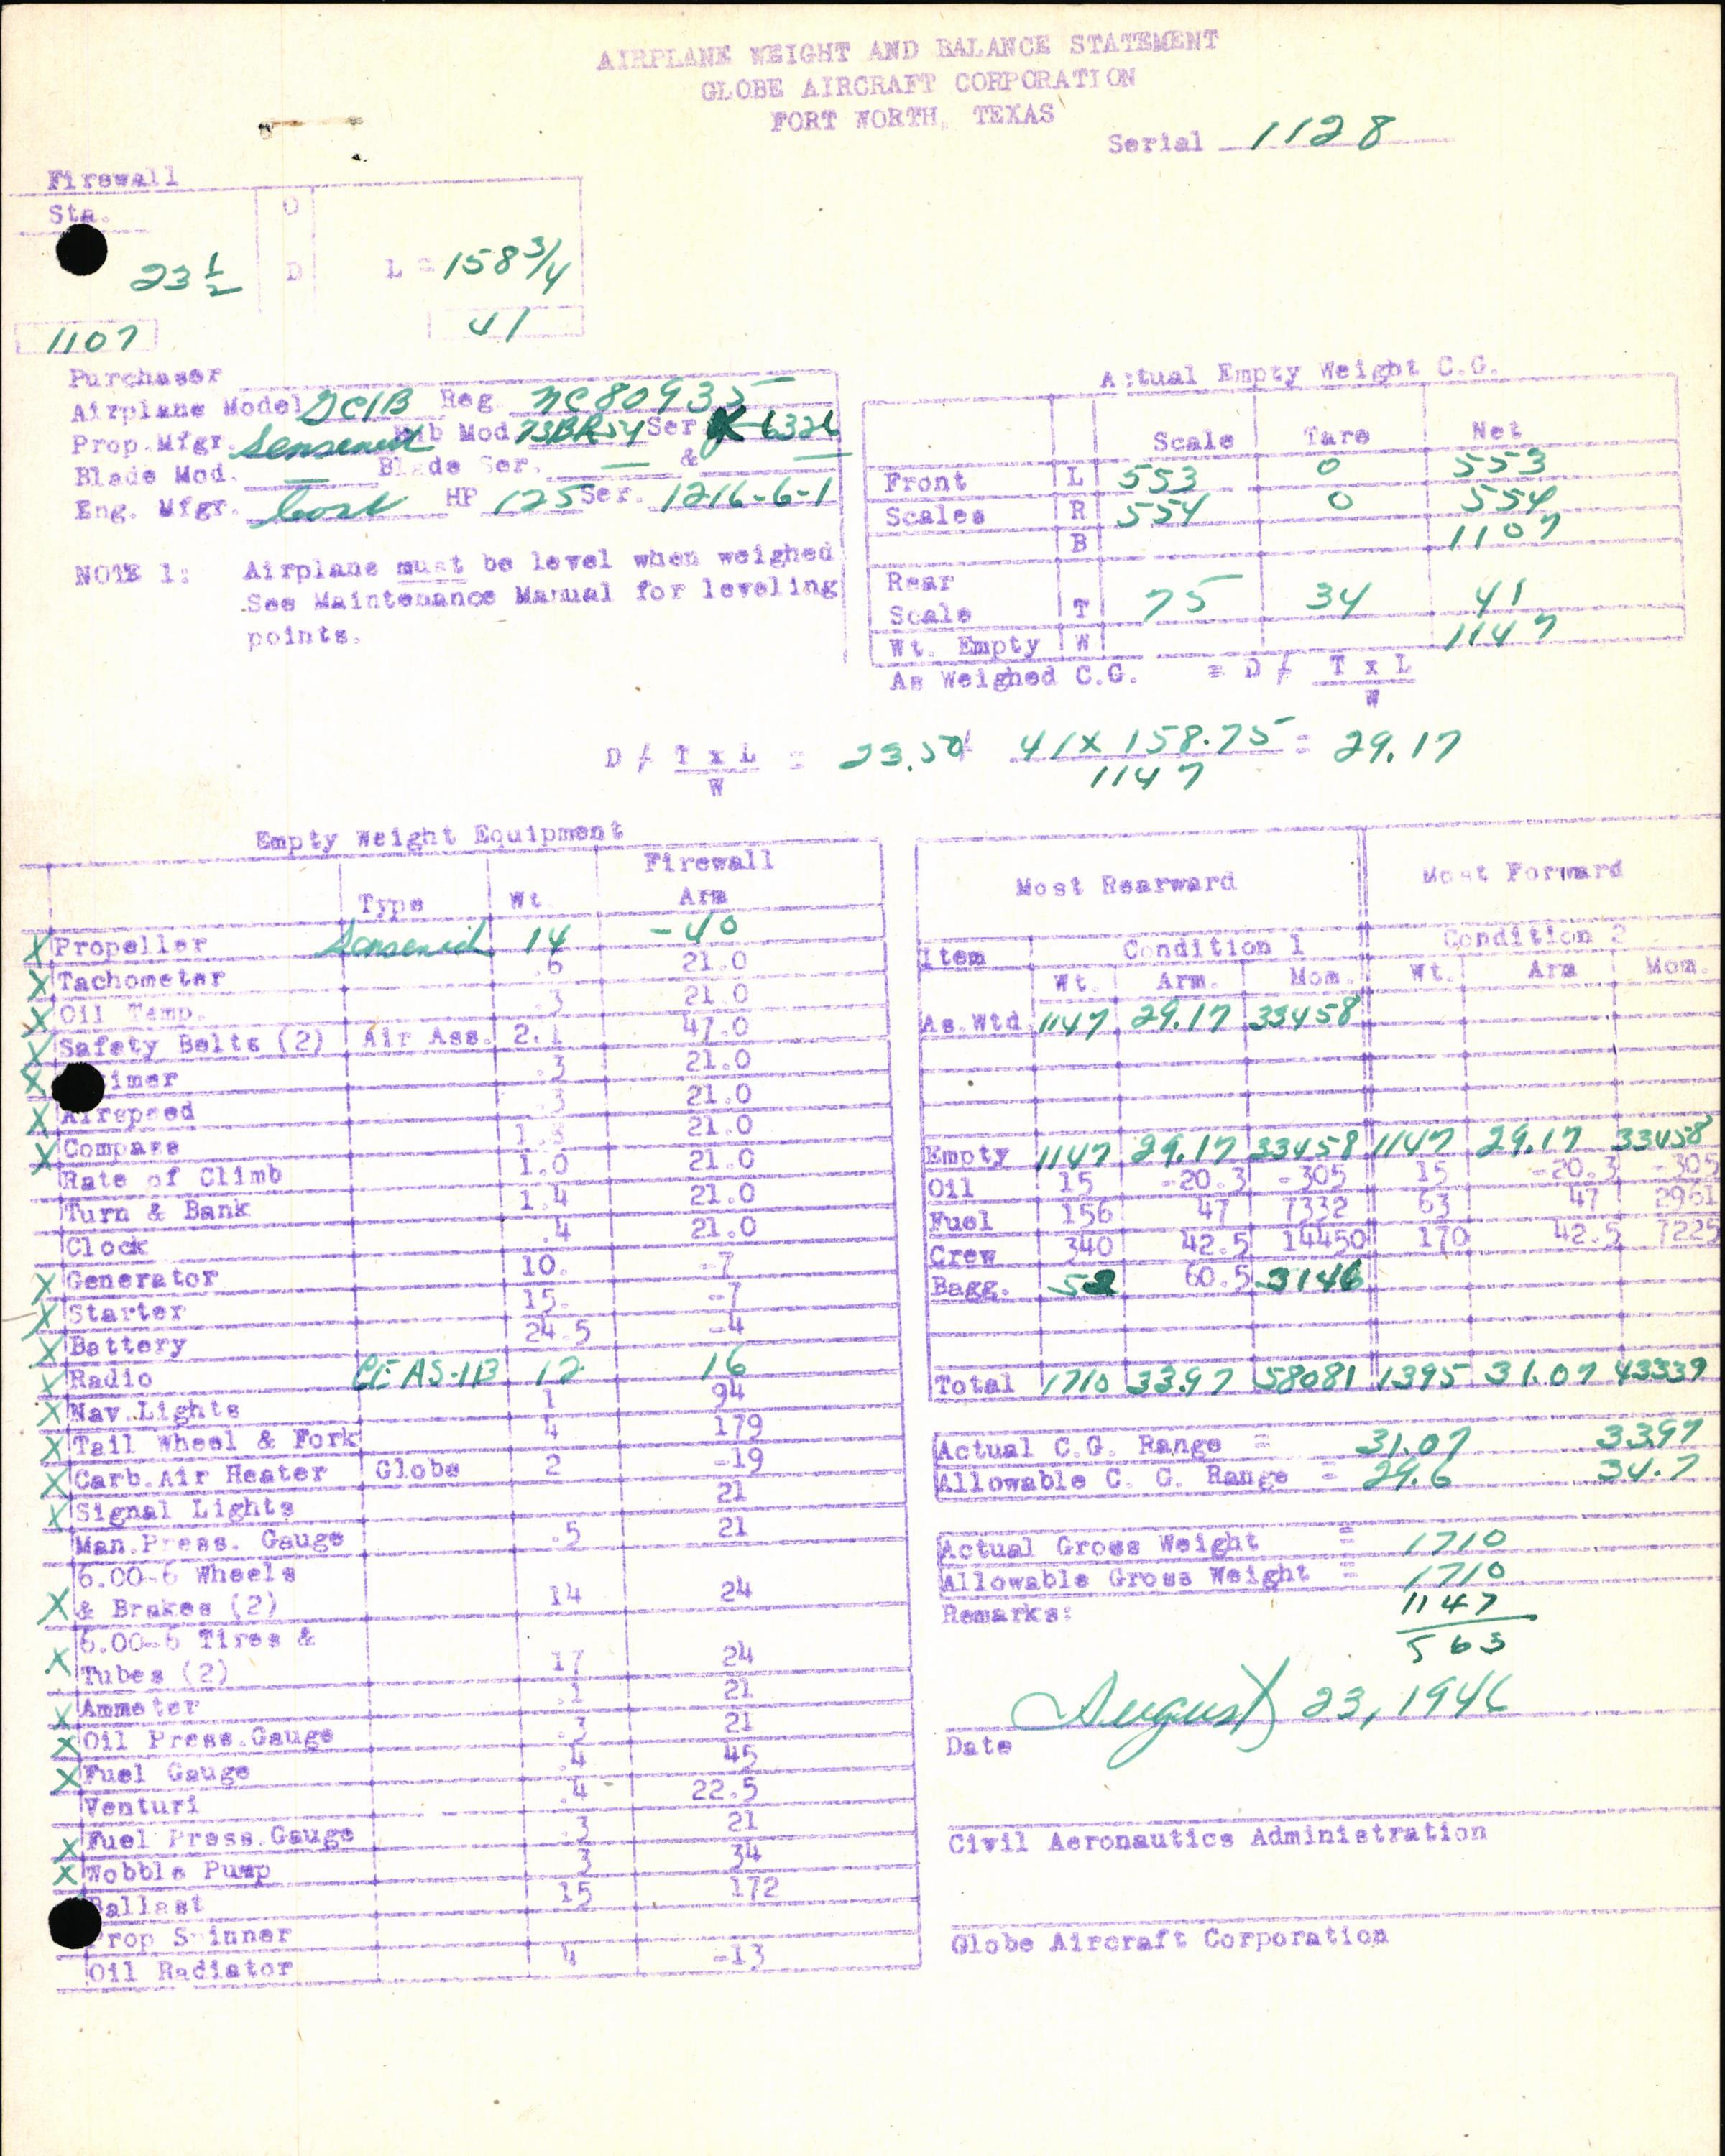 AIRPLANE WEIGHT AND BALANCE STATEMENT
GLOBE AIRCRAFT CORPORATION
FORT WORTH, TEXAS
Serial 1128
Firewall
Sta. O
23 1/2 D L = 158 3/4
1107 41
Purchaser
Airplane Model GC1B Reg NC80935
Prop.Mfgr. Sensenich Hub Mod 73BR54 Ser 6326
Blade Mod. — Blade Ser. — & —
Eng. Mfgr. Cont HP 125 Ser. 1216-6-1
NOTE 1: Airplane must be level when weighed
See Maintenance Manual for leveling
points.
Actual Empty Weight C.G.
Scale Tare Net
Front L 553 0 553
Scales R 554 0 554
B 1107
Rear
Scale T 75 34 41
Wt. Empty W 1147
As Weighed C.G. = D / T x L
W
D / T x L = 23.50 / 41 x 158.75 = 29.17
W 1147
Empty Weight Equipment
Type Wt. Firewall Arm
X Propeller Sensenich 14 -40
X Tachometer .6 21.0
X Oil Temp. .3 21.0
X Safety Belts (2) Air Ass. 2.1 47.0
X imer .3 21.0
X Airspeed .3 21.0
X Compass 1.3 21.0
Rate of Climb 1.0 21.0
Turn & Bank 1.4 21.0
Clock .4 21.0
X Generator 10. -7
X Starter 15. -7
X Battery 24.5 -4
X Radio GE AS-1B 12 16
X Nav.Lights 1 94
X Tail Wheel & Fork 4 179
X Carb.Air Heater Globe 2 -19
X Signal Lights 21
Man.Press. Gauge .5 21
6.00-6 Wheels
X & Brakes (2) 14 24
6.00-6 Tires &
X Tubes (2) 17 24
X Ammeter .1 21
X Oil Press.Gauge .3 21
X Fuel Gauge .4 45
Venturi .4 22.5
X Fuel Press.Gauge .3 21
X Wobble Pump 3 34
Ballast 15 172
Prop Spinner
Oil Radiator 4 -13
Most Rearward Most Forward
Item Condition 1 Condition 2
Wt. Arm. Mom. Wt. Arm Mom.
As Wtd 1147 29.17 33458
Empty 1147 29.17 33458 1147 29.17 33458
Oil 15 -20.3 -305 15 -20.3 -305
Fuel 156 47 7332 63 47 2961
Crew 340 42.5 14450 170 42.5 7225
Bagg. 52 60.5 3146
Total 1710 33.97 58081 1395 31.07 43339
Actual C.G. Range = 31.07 33.97
Allowable C. G. Range = 29.6 34.7
Actual Gross Weight = 1710
Allowable Gross Weight = 1710
Remarks: 1147
563
August 23, 1946
Date
Civil Aeronautics Administration
Globe Aircraft Corporation